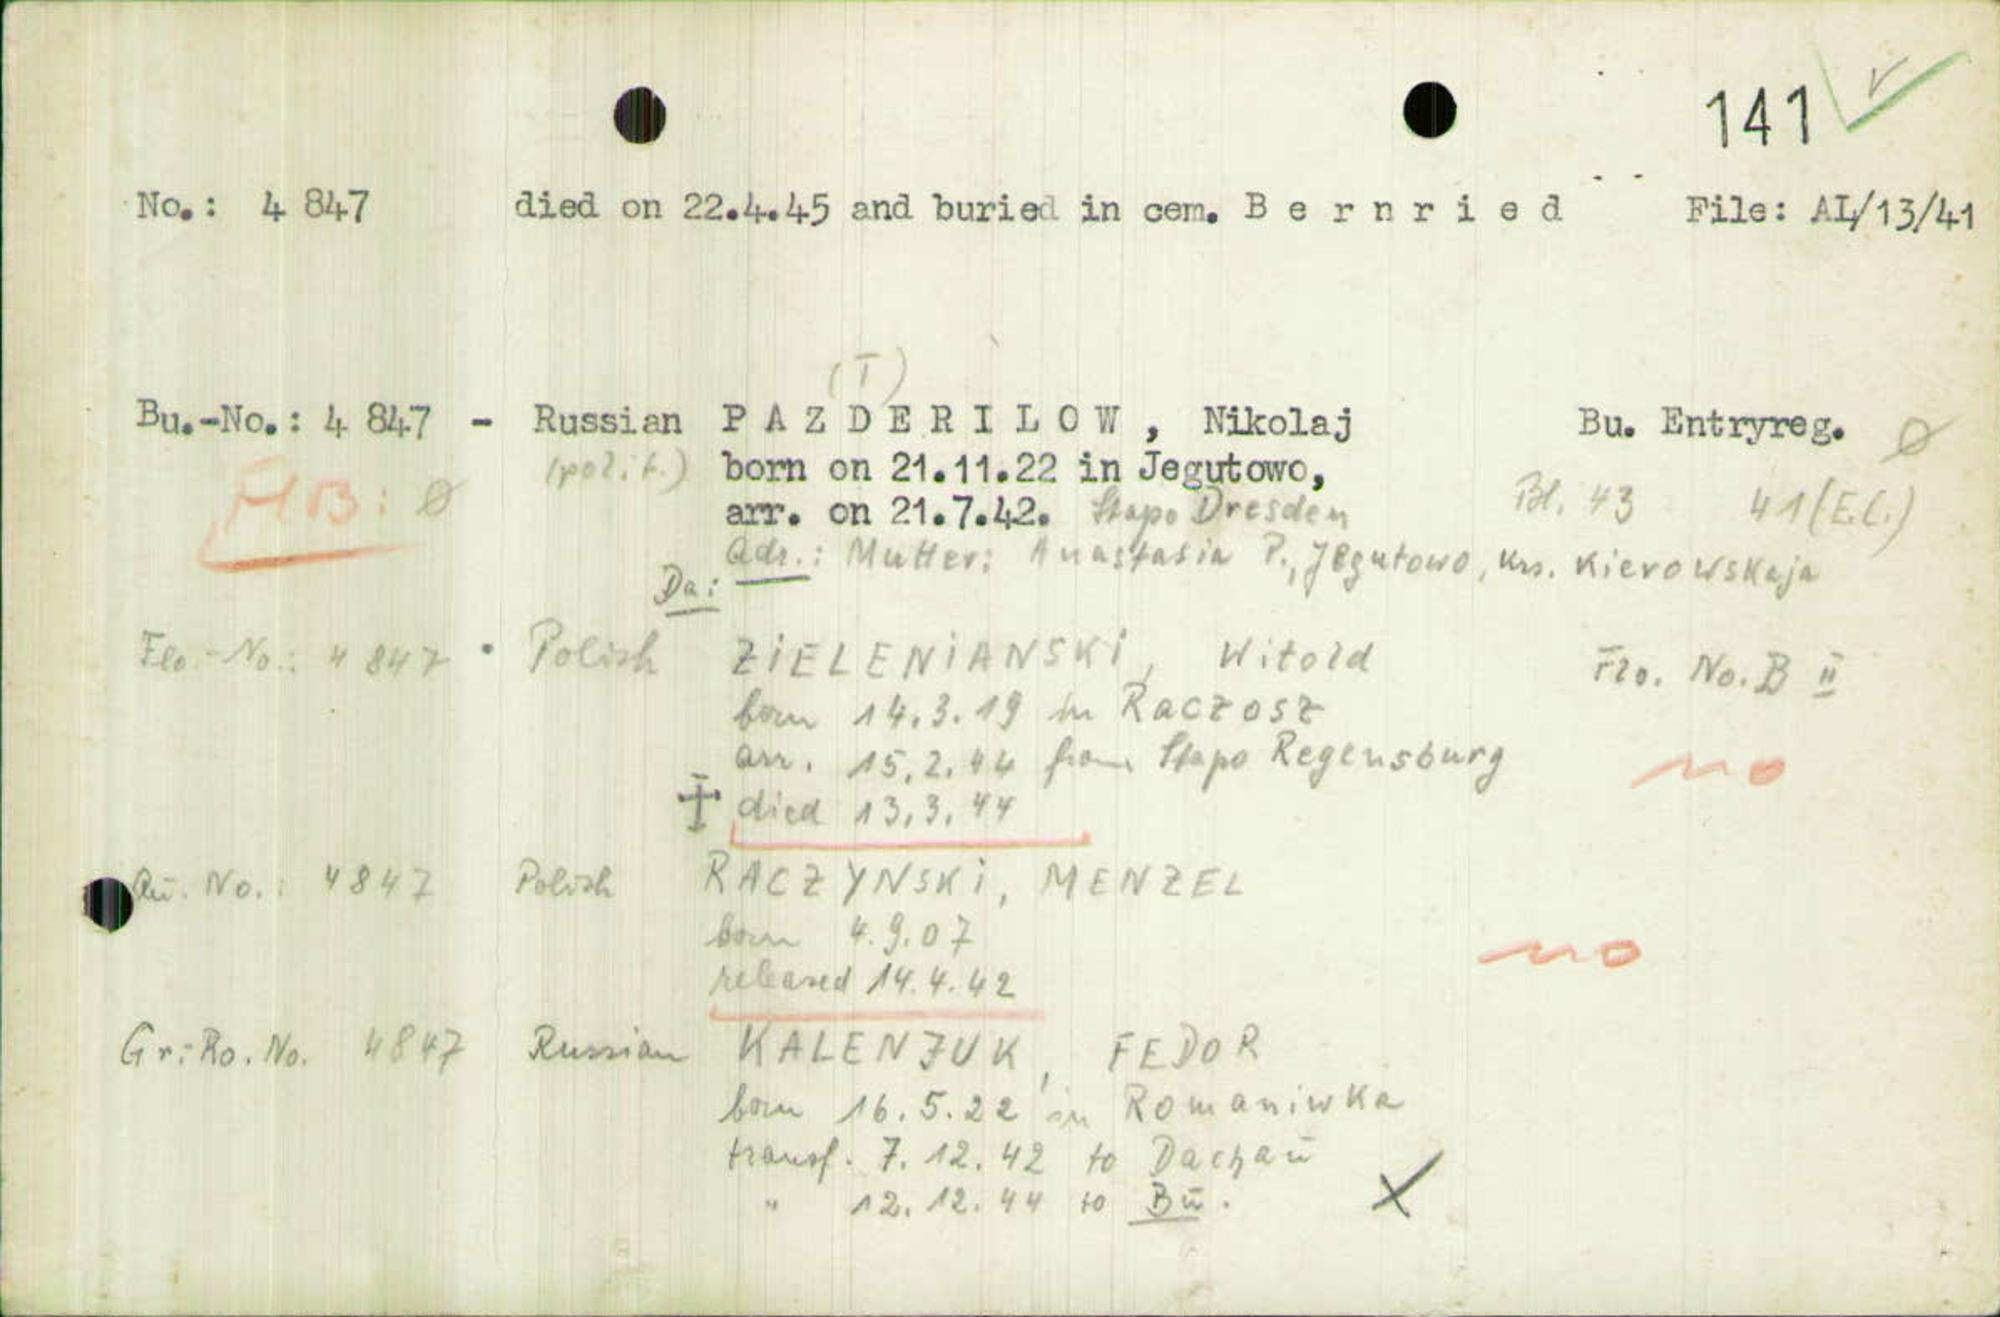 141 ✓
No.: 4 847 died on 22.4.45 and buried in cem. B e r n r i e d File: AL/13/41
(T)
Bu.-No.: 4 847 - Russian P A Z D E R I L O W , Nikolaj Bu. Entryreg. Ø
(polit.) born on 21.11.22 in Jegutowo,
arr. on 21.7.42. Stapo Dresden Bl. 43 41 (E.C.)
Adr.: Mutter: Anastasia P., Jegutowo, Krs. Kierowskaja
Da:
Flo.-No.: 4 847 Polish ZIELENIANSKI, Witold Flo. No. B II
born 14.3.19 in Raczosz
arr. 15.2.44 from Stapo Regensburg no
died 13.3.44
Au. No.: 4847 Polish RACZYNSKI, MENZEL
born 4.9.07 no
released 14.4.42
Gr.-Ro. No. 4847 Russian KALENJUK, FEDOR
born 16.5.22 in Romaniwka
transf. 7.12.42 to Dachau
" 12.12.44 to Bu.